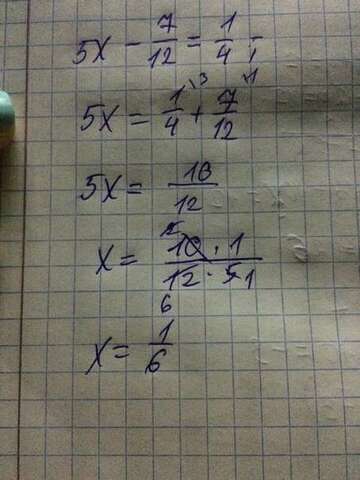 5x - 7/12 = 1/4 ;
5x = 1/4 \3 + 7/12 \1
5x = 10/12
x = 10 2 · 1 / 12 6 · 5 1
x = 1/6